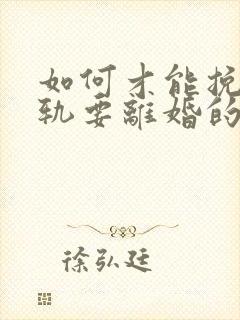 如何才能挽
轨要離婚的
徐弘廷